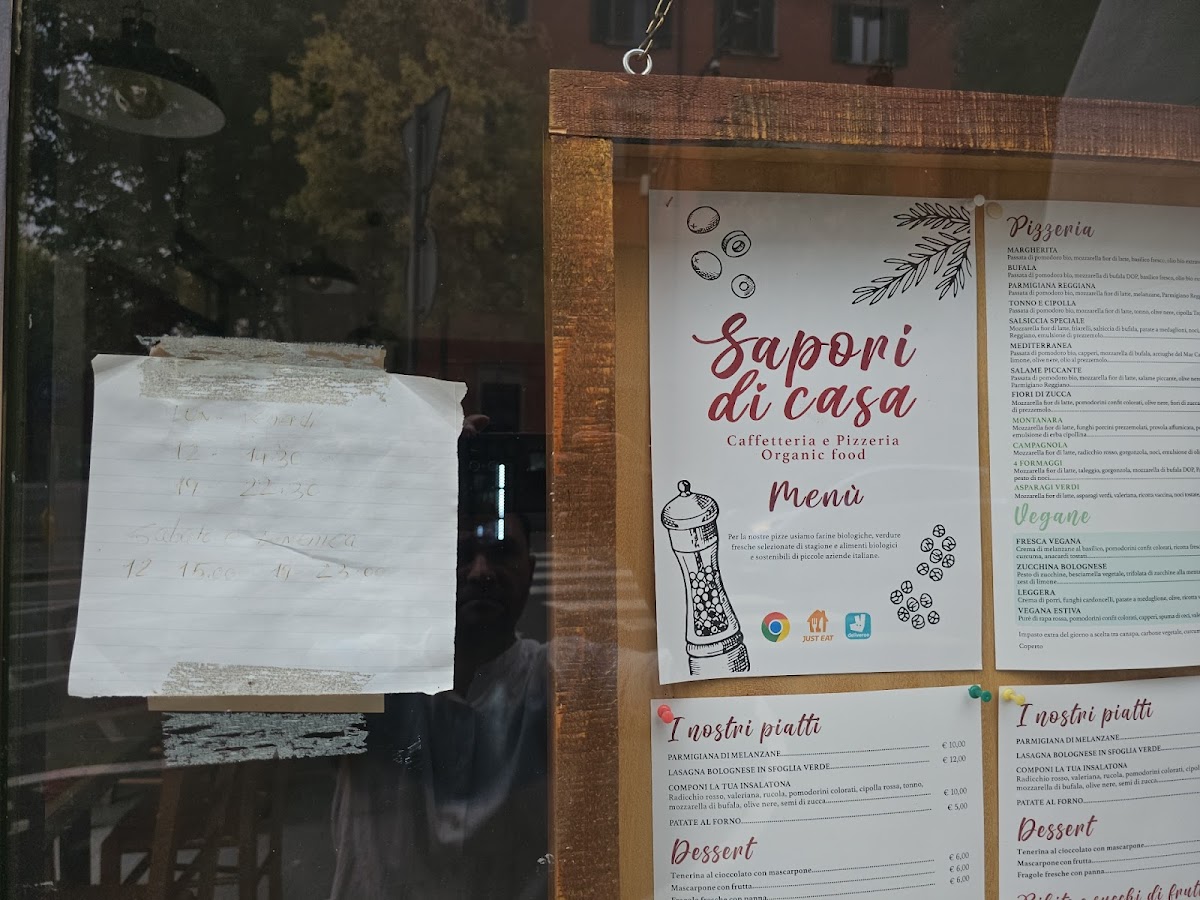 12 - 14.30
19 - 22.30
Sabato e Domenica
12 15.00 19 23.00
Sapori
di casa
Caffetteria e Pizzeria
Organic food
Menù
Per la nostre pizze usiamo farine biologiche, verdure
fresche selezionate di stagione e alimenti biologici
e sostenibili di piccole aziende italiane.
JUST EAT
deliveroo
Pizzeria
MARGHERITA
Passata di pomodoro bio, mozzarella fior di latte, basilico fresco, olio bio
BUFALA
Passata di pomodoro bio, mozzarella di bufala DOP, basilico fresco, olio bio
PARMIGIANA REGGIANA
Passata di pomodoro bio, mozzarella fior di latte, melanzane, Parmigiano
TONNO E CIPOLLA
Passata di pomodoro bio, mozzarella fior di latte, tonno, olive nere, cipolla
SALSICCIA SPECIALE
Mozzarella fior di latte, friarelli, salsiccia di bufala, patate a medaglioni, noci,
Reggiano, emulsione di prezzemolo
MEDITERRANEA
Passata di pomodoro bio, capperi, mozzarella di bufala, acciughe del Mar
limone, olive nere, olio al prezzemolo
SALAME PICCANTE
Passata di pomodoro bio, mozzarella fior di latte, salame piccante, olive
Parmigiano Reggiano
FIORI DI ZUCCA
Mozzarella fior di latte, pomodorini confit colorati, olive nere, fiori di
di prezzemolo
MONTANARA
Mozzarella fior di latte, funghi porcini prezzemolati, provola affumicata,
emulsione di erba cipollina
CAMPAGNOLA
Mozzarella fior di latte, radicchio rosso, gorgonzola, noci, emulsione di
4 FORMAGGI
Mozzarella fior di latte, taleggio, gorgonzola, mozzarella di bufala DOP,
pesto di noci
ASPARAGI VERDI
Mozzarella fior di latte, asparagi verdi, valeriana, ricotta vaccina, noci
Vegane
FRESCA VEGANA
Crema di melanzane al basilico, pomodorini confit colorati, ricotta
curcuma, anacardi tostati
ZUCCHINA BOLOGNESE
Pesto di zucchine, besciamella vegetale, trifolata di zucchine alla
zest di limone
LEGGERA
Crema di porri, funghi cardoncelli, patate a medaglione, olive, ricotta
VEGANA ESTIVA
Pure di rapa rossa, pomodorini confit colorati, capperi, spuma di ceci,
Impasto extra del giorno a scelta tra canapa, carbone vegetale,
Coperto
I nostri piatti
PARMIGIANA DI MELANZANE € 10,00
LASAGNA BOLOGNESE IN SFOGLIA VERDE € 12,00
COMPONI LA TUA INSALATONA
Radicchio rosso, valeriana, rucola, pomodorini colorati, cipolla rossa, tonno,
mozzarella di bufala, olive nere, semi di zucca € 10,00
PATATE AL FORNO € 5,00
Dessert
Tenerina al cioccolato con mascarpone € 6,00
Mascarpone con frutta € 6,00
Fragole fresche con panna € 6,00
I nostri piatti
PARMIGIANA DI MELANZANE
LASAGNA BOLOGNESE IN SFOGLIA VERDE
COMPONI LA TUA INSALATONA
Radicchio rosso, valeriana, rucola, pomodorini colorati,
mozzarella di bufala, olive nere, semi di zucca
PATATE AL FORNO
Dessert
Tenerina al cioccolato con mascarpone
Mascarpone con frutta
Fragole fresche con panna